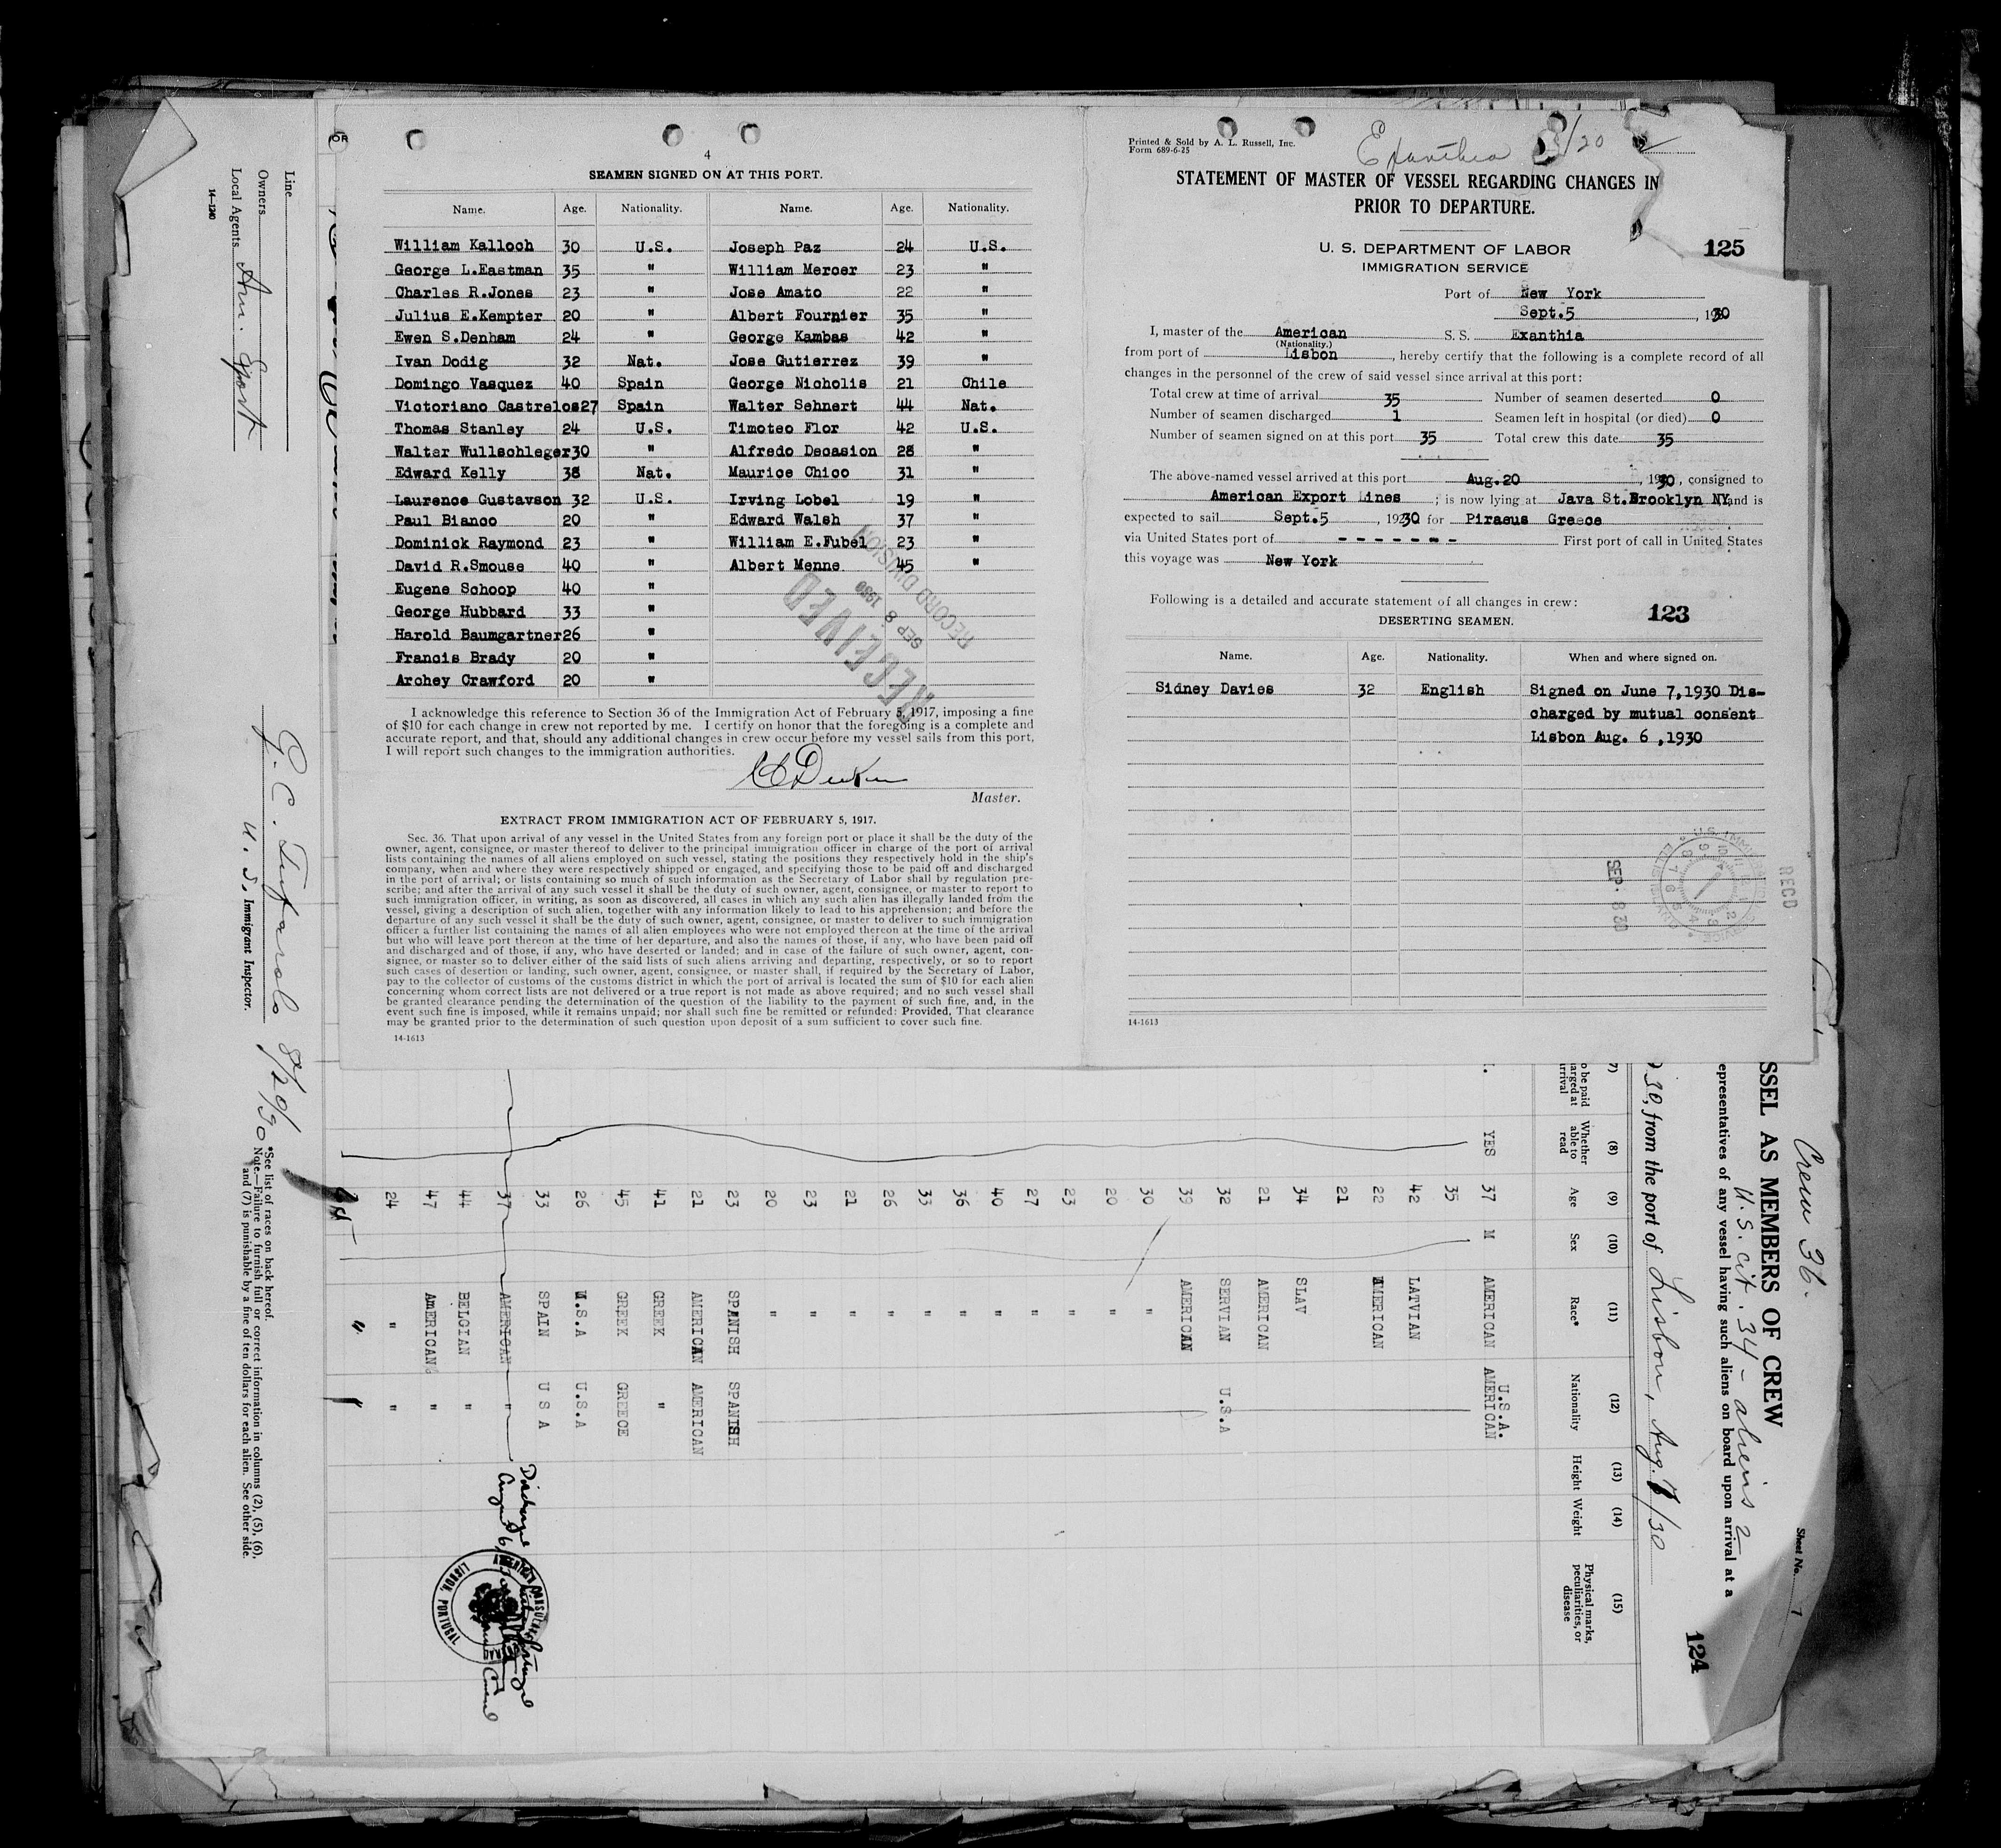 OR
4
SEAMEN SIGNED ON AT THIS PORT.
Name. Age. Nationality. Name. Age. Nationality.
William Kalloch 30 U.S. Joseph Paz 24 U.S.
George L.Eastman 35 " William Mercer 23 "
Charles R.Jones 23 " Jose Amato 22 "
Julius E.Kempter 20 " Albert Fournier 35 "
Ewen S.Denham 24 " George Kambas 42 "
Ivan Dodig 32 Nat. Jose Gutierrez 39 "
Domingo Vasquez 40 Spain George Nicholis 21 Chile
Victoriano Castrelos27 Spain Walter Sehnert 44 Nat.
Thomas Stanley 24 U.S. Timoteo Flor 42 U.S.
Walter Wullschleger30 " Alfredo Decasion 28 "
Edward Kelly 38 Nat. Maurice Chico 31 "
Laurence Gustavson 32 U.S. Irving Lobel 19 "
Paul Bianco 20 " Edward Walsh 37 "
Dominick Raymond 23 " William E.Fubel 23 "
David R.Smouse 40 " Albert Menne 45 "
Eugene Schoop 40 "
George Hubbard 33 "
Harold Baumgartner26 "
Francis Brady 20 "
Archey Crawford 20 "
RECEIVED
SEP 8 1930
RECORD DIVISION
I acknowledge this reference to Section 36 of the Immigration Act of February 5, 1917, imposing a fine
of $10 for each change in crew not reported by me. I certify on honor that the foregoing is a complete and
accurate report, and that, should any additional changes in crew occur before my vessel sails from this port,
I will report such changes to the immigration authorities.
Master.
EXTRACT FROM IMMIGRATION ACT OF FEBRUARY 5, 1917.
Sec. 36. That upon arrival of any vessel in the United States from any foreign port or place it shall be the duty of the
owner, agent, consignee, or master thereof to deliver to the principal immigration officer in charge of the port of arrival
lists containing the names of all aliens employed on such vessel, stating the positions they respectively hold in the ship's
company, when and where they were respectively shipped or engaged, and specifying those to be paid off and discharged
in the port of arrival; or lists containing so much of such information as the Secretary of Labor shall by regulation pre-
scribe; and after the arrival of any such vessel it shall be the duty of such owner, agent, consignee, or master to report to
such immigration officer, in writing, as soon as discovered, all cases in which any such alien has illegally landed from the
vessel, giving a description of such alien, together with any information likely to lead to his apprehension; and before the
departure of any such vessel it shall be the duty of such owner, agent, consignee, or master to deliver to such immigration
officer a further list containing the names of all alien employees who were not employed thereon at the time of the arrival
but who will leave port thereon at the time of her departure, and also the names of those, if any, who have been paid off
and discharged and of those, if any, who have deserted or landed; and in case of the failure of such owner, agent, con-
signee, or master so to deliver either of the said lists of such aliens arriving and departing, respectively, or so to report
such cases of desertion or landing, such owner, agent, consignee, or master shall, if required by the Secretary of Labor,
pay to the collector of customs of the customs district in which the port of arrival is located the sum of $10 for each alien
concerning whom correct lists are not delivered or a true report is not made as above required; and no such vessel shall
be granted clearance pending the determination of the question of the liability to the payment of such fine, and, in the
event such fine is imposed, while it remains unpaid; nor shall such fine be remitted or refunded: Provided, That clearance
may be granted prior to the determination of such question upon deposit of a sum sufficient to cover such fine.
14-1613
Printed & Sold by A. L. Russell, Inc.
Form 689-6-25
Exanthia 8/20
STATEMENT OF MASTER OF VESSEL REGARDING CHANGES IN
PRIOR TO DEPARTURE.
U. S. DEPARTMENT OF LABOR 125
IMMIGRATION SERVICE
Port of New York
Sept.5, 1930
I, master of the American S. S. Exanthia
(Nationality.)
from port of Lisbon, hereby certify that the following is a complete record of all
changes in the personnel of the crew of said vessel since arrival at this port:
Total crew at time of arrival 35 Number of seamen deserted 0
Number of seamen discharged 1 Seamen left in hospital (or died) 0
Number of seamen signed on at this port 35 Total crew this date 35
The above-named vessel arrived at this port Aug.20, 1930, consigned to
American Export Lines; is now lying at Java St.Brooklyn NY, and is
expected to sail Sept.5, 1930 for Piraeus Greece
via United States port of - - - - - - - First port of call in United States
this voyage was New York
Following is a detailed and accurate statement of all changes in crew:
DESERTING SEAMEN. 123
Name. Age. Nationality. When and where signed on.
Sidney Davies 32 English Signed on June 7,1930 Dis-
charged by mutual consent
Lisbon Aug. 6 ,1930
SEP. 8 30
RECD
14-1613
Line
Owners
Local Agents Am. Export
14-1240
U. S. Immigrant Inspector.
8/20/30
*See list of races on back hereof.
Note.—Failure to furnish full or correct information in columns (2), (5), (6),
and (7) is punishable by a fine of ten dollars for each alien. See other side.
Crew 36.
U.S. cit. 34 - aliens 2
Sheet No. 1
124
SSEL AS MEMBERS OF CREW
epresentatives of any vessel having such aliens on board upon arrival at a
30, from the port of Lisbon, Aug. 7/30
(8) Whether able to read
(9) Age
(10) Sex
(11) Race*
(12) Nationality
(13) Height
(14) Weight
(15) Physical marks, peculiarities, or disease
YES 37 M AMERICAN U.S.A. AMERICAN
35
42 LATVIAN
22 AMERICAN
21
34 SLAV
21 AMERICAN
32 SERVIAN U.S.A
39 AMERICAN
30 "
20 "
23 "
27 "
40 "
36 "
33 "
26 "
21 "
23 "
20 "
23 SPANISH SPANISH
21 AMERICAN AMERICAN
41 GREEK "
45 GREEK GREECE
26 U.S.A U.S.A
33 SPAIN U S A
37 AMERICAN "
44 BELGIAN "
47 AMERICAN "
24 " "
LISBON, PORTUGAL